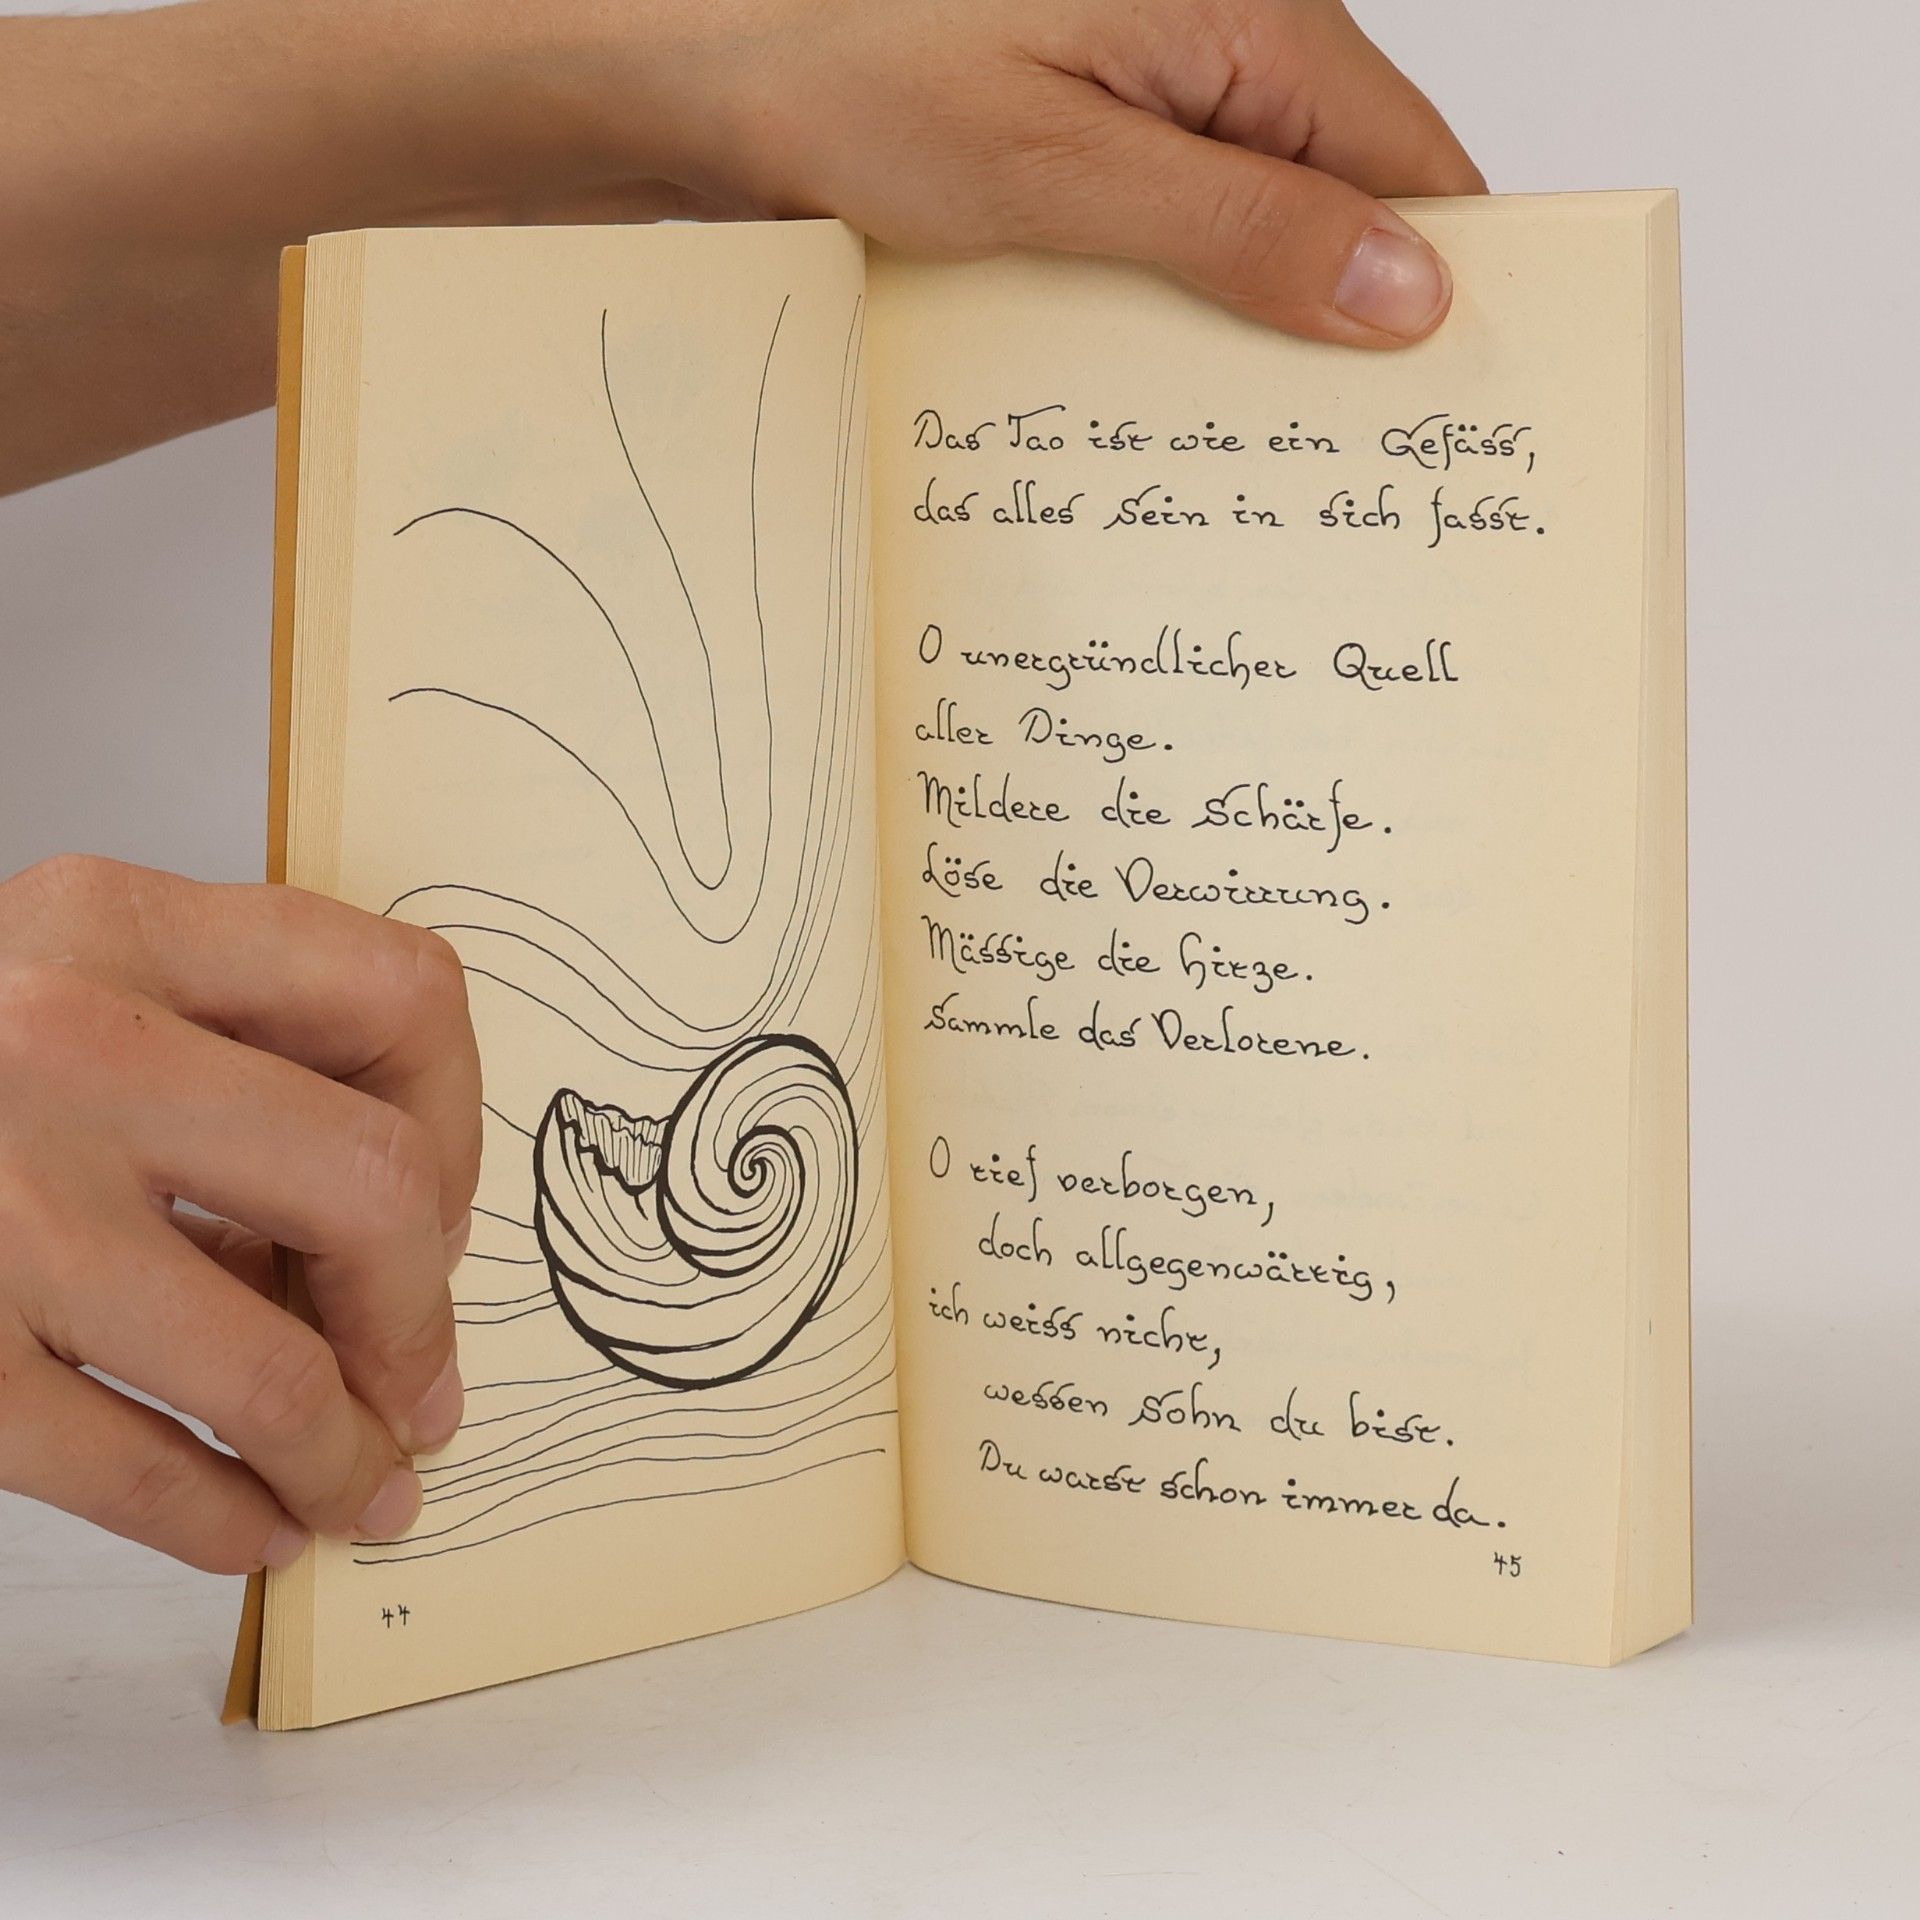 Das Tao ist wie ein Gefäss,
das alles Sein in sich fasst.
O unergründlicher Quell
aller Dinge.
Mildere die Schärfe.
Löse die Verwirrung.
Mässige die Hitze.
Sammle das Verlorene.
O tief verborgen,
doch allgegenwärtig,
ich weiss nicht,
wessen Sohn du bist.
Du warst schon immer da.
44
45